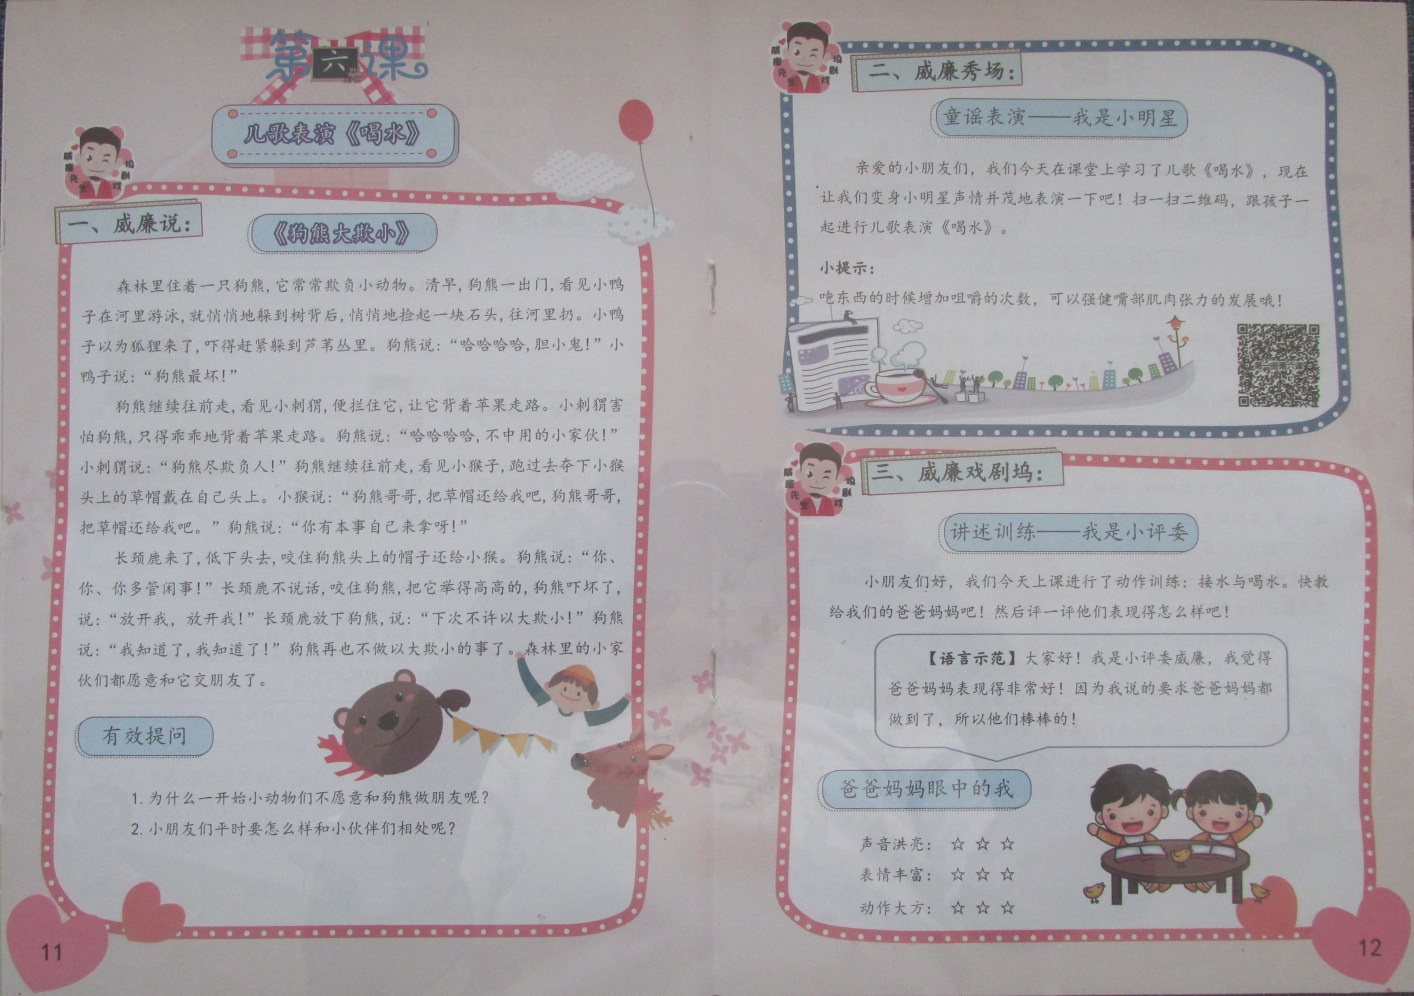 第六课
儿歌表演《喝水》
一、威廉说：
《狗熊大欺小》
森林里住着一只狗熊，它常常欺负小动物。清早，狗熊一出门，看见小鸭
子在河里游泳，就悄悄地躲到树背后，悄悄地捡起一块石头，往河里扔。小鸭
子以为狐狸来了，吓得赶紧躲到芦苇丛里。狗熊说：“哈哈哈哈，胆小鬼！”小
鸭子说：“狗熊最坏！”
狗熊继续往前走，看见小刺猬，便拦住它，让它背着苹果走路。小刺猬害
怕狗熊，只得乖乖地背着苹果走路。狗熊说：“哈哈哈哈，不中用的小家伙！”
小刺猬说：“狗熊尽欺负人！”狗熊继续往前走，看见小猴子，跑过去夺下小猴
头上的草帽戴在自己头上。小猴说：“狗熊哥哥，把草帽还给我吧，狗熊哥哥，
把草帽还给我吧。”狗熊说：“你有本事自己来拿呀！”
长颈鹿来了，低下头去，咬住狗熊头上的帽子还给小猴。狗熊说：“你、
你、你多管闲事！”长颈鹿不说话，咬住狗熊，把它举得高高的，狗熊吓坏了，
说：“放开我，放开我！”长颈鹿放下狗熊，说：“下次不许以大欺小！”狗熊
说：“我知道了，我知道了！”狗熊再也不做以大欺小的事了。森林里的小家
伙们都愿意和它交朋友了。
有效提问
1.为什么一开始小动物们不愿意和狗熊做朋友呢？
2.小朋友们平时要怎么样和小伙伴们相处呢？
11
二、威廉秀场：
童谣表演——我是小明星
亲爱的小朋友们，我们今天在课堂上学习了儿歌《喝水》，现在
让我们变身小明星声情并茂地表演一下吧！扫一扫二维码，跟孩子一
起进行儿歌表演《喝水》。
小提示：
吃东西的时候增加咀嚼的次数，可以强健嘴部肌肉张力的发展哦！
三、威廉戏剧坞：
讲述训练——我是小评委
小朋友们好，我们今天上课进行了动作训练：接水与喝水。快教
给我们的爸爸妈妈吧！然后评一评他们表现得怎么样吧！
【语言示范】大家好！我是小评委威廉，我觉得
爸爸妈妈表现得非常好！因为我说的要求爸爸妈妈都
做到了，所以他们棒棒的！
爸爸妈妈眼中的我
声音洪亮：☆ ☆ ☆
表情丰富：☆ ☆ ☆
动作大方：☆ ☆ ☆
12